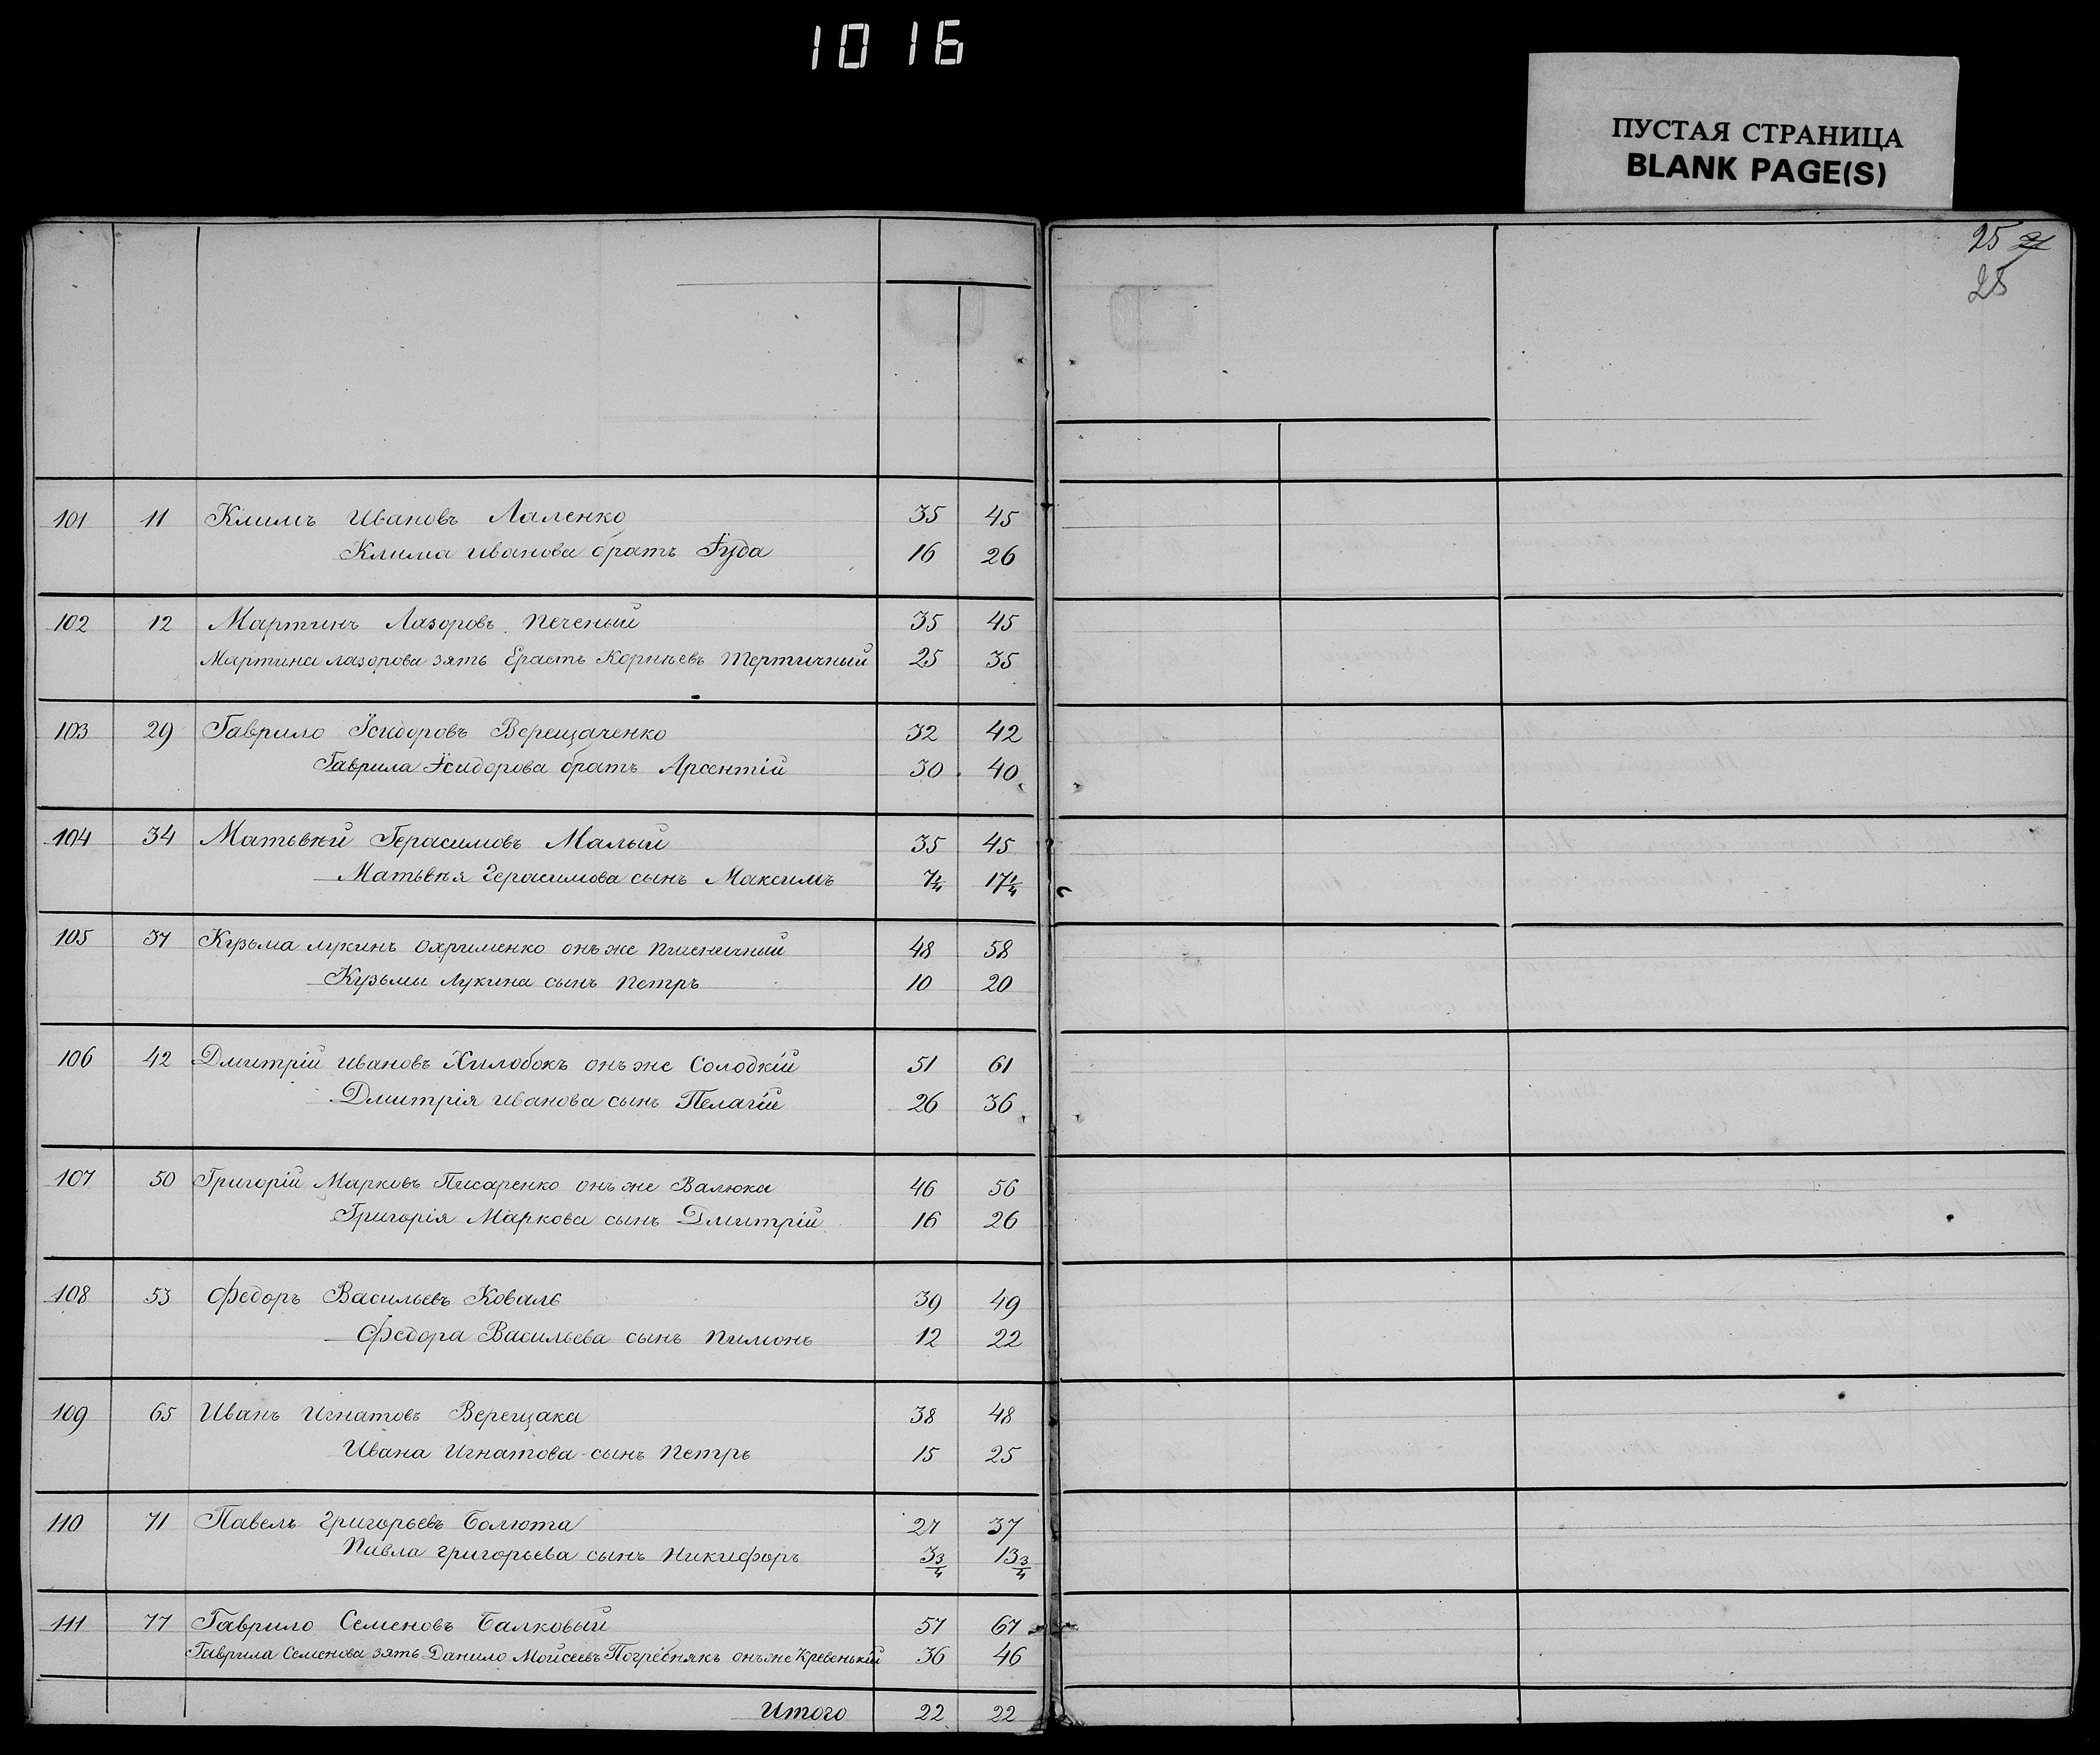 1016
ПУСТАЯ СТРАНИЦА
BLANK PAGE(S)
25 21
28
101 11 Климъ Ивановъ Лаленко 35 45
Клима Иванова братъ Іуда 16 26
102 12 Мартинъ Лазоровъ Печеный 35 45
Мартина Лазорова зять Ерастъ Корнѣевъ Тертичный 25 35
103 29 Гаврило Ісидоровъ Верещаченко 32 42
Гаврила Ісидорова братъ Арсентій 30 40
104 34 Матьвѣй Герасимовъ Малый 35 45
Матьвѣя Герасимова сынъ Максимъ 7¼ 17¼
105 37 Кузьма Лукинъ Охрименко онъ же Пшеничный 48 58
Кузьмы Лукина сынъ Петръ 10 20
106 42 Дмитрій Ивановъ Хилобокъ онъ же Солодкій 51 61
Дмитрія Иванова сынъ Пелагій 26 36
107 50 Григорій Марковъ Писаренко онъ же Валюка 46 56
Григорія Маркова сынъ Дмитрій 16 26
108 53 Федоръ Васильевъ Коваль 39 49
Федора Васильева сынъ Пимонъ 12 22
109 65 Иванъ Игнатовъ Верещака 38 48
Ивана Игнатова сынъ Петръ 15 25
110 71 Павелъ Григорьевъ Балюта 27 37
Павла Григорьева сынъ Никифоръ 3¾ 13¾
111 77 Гаврило Семеновъ Балковый 57 67
Гаврила Семенова зять Данило Мойсеевъ Погрѣбнякъ онъ же Кревенькій 36 46
Итого 22 22